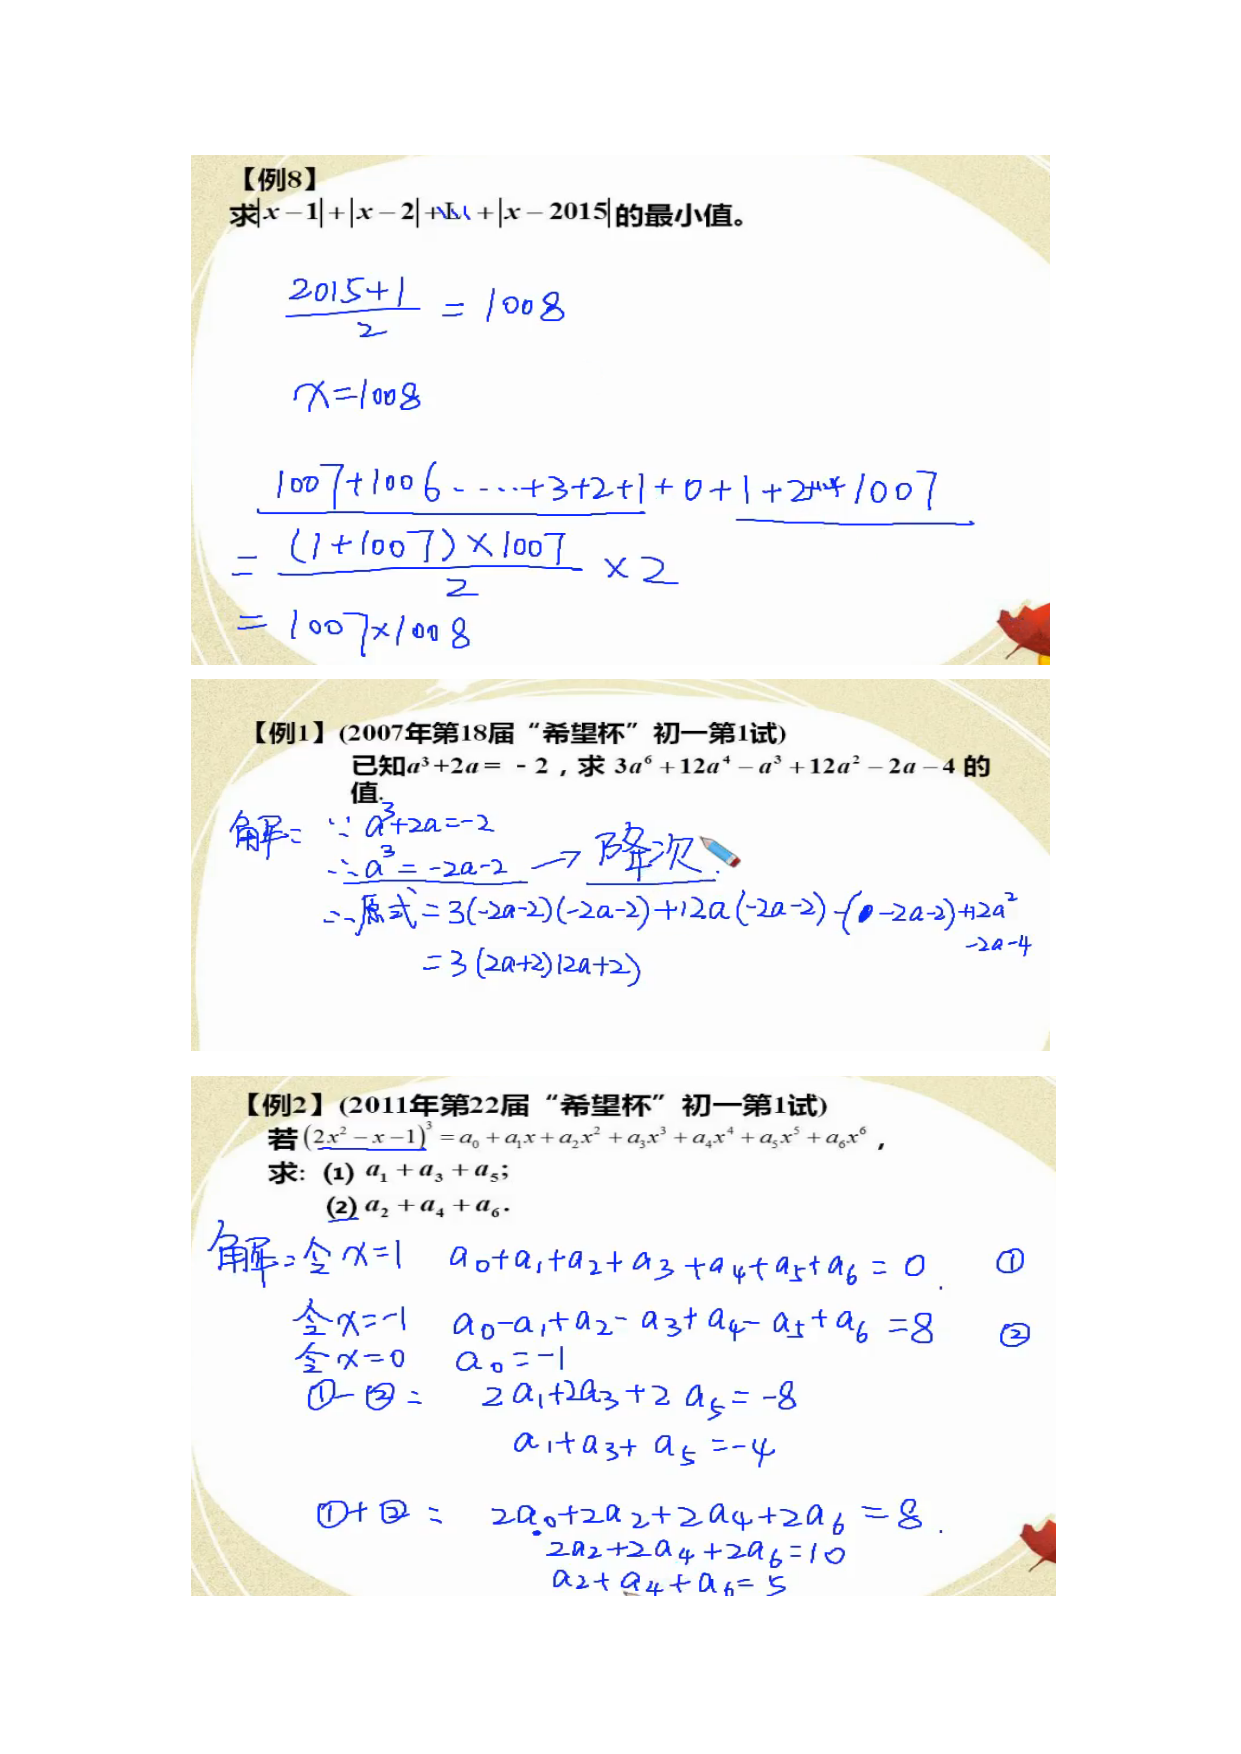 【例8】
求|x－1|＋|x－2|＋L＋|x－2015|的最小值。
(2015+1)/2 = 1008
x=1008
1007+1006·····+3+2+1+0+1+2+···+1007
= (1+1007)×1007/2 ×2
= 1007×1008
【例1】(2007年第18届“希望杯”初一第1试)
已知a³+2a= －2，求 3a⁶+12a⁴－a³+12a²－2a－4 的
值.
解: ∵ a³+2a=-2
∴ a³ = -2a-2 → 降次.
∴原式=3(-2a-2)(-2a-2)+12a(-2a-2)-(-2a-2)+12a²
-2a-4
=3(2a+2)(2a+2)
【例2】(2011年第22届“希望杯”初一第1试)
若(2x²－x－1)³=a₀+a₁x+a₂x²+a₃x³+a₄x⁴+a₅x⁵+a₆x⁶，
求: (1) a₁+a₃+a₅;
(2) a₂+a₄+a₆.
解: 令x=1 a₀+a₁+a₂+a₃+a₄+a₅+a₆=0. ①
令x=-1 a₀-a₁+a₂-a₃+a₄-a₅+a₆=8 ②
令x=0 a₀=-1
①-②= 2a₁+2a₃+2a₅=-8
a₁+a₃+a₅=-4
①+②= 2a₀+2a₂+2a₄+2a₆=8.
2a₂+2a₄+2a₆=10
a₂+a₄+a₆=5